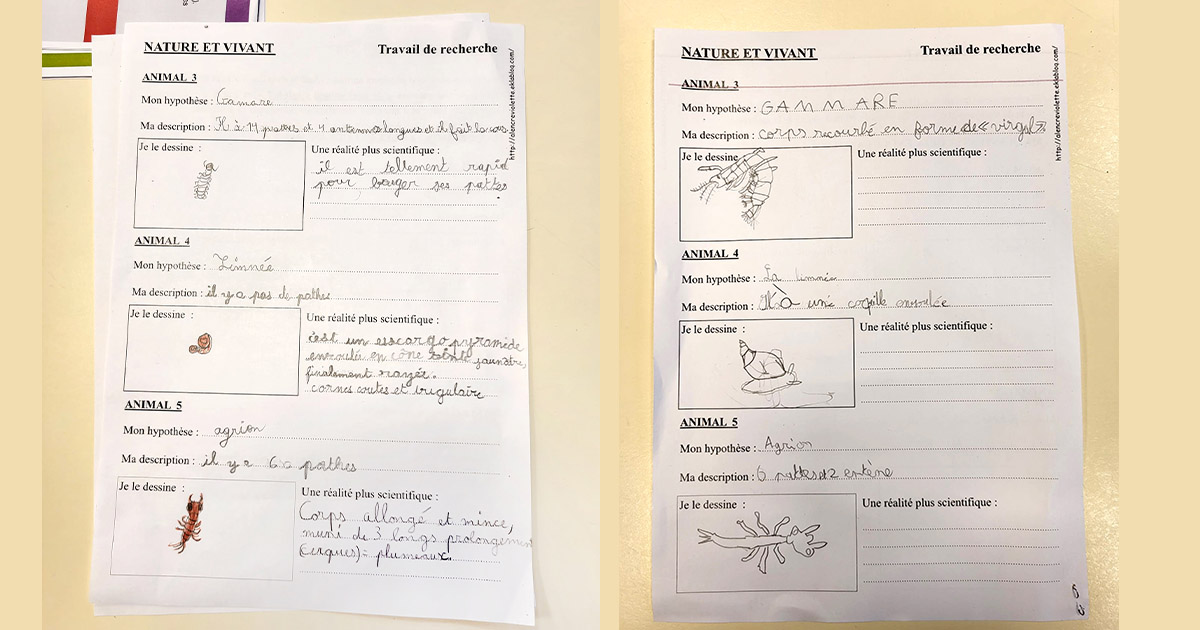 NATURE ET VIVANT
Travail de recherche
ANIMAL 3
Mon hypothèse : Gamare
Ma description : Il à 14 pattes et 4 antennes longues et il fait la
Je le dessine :
Une réalité plus scientifique :
il est tellement rapid
pour bouger ses pattes
ANIMAL 4
Mon hypothèse : Limnée
Ma description : il y a pas de pathes
Je le dessine :
Une réalité plus scientifique :
c'est un escargo pyramide
enroulée en cône jaunatre,
finalement rayée.
cornes coutes et
ANIMAL 5
Mon hypothèse : agrion
Ma description : il y a 6 pathes
Je le dessine :
Une réalité plus scientifique :
Corps allongé et mince,
muni de 3 longs prolongement
(cerques) = plumeaux.
http://alencreviolette.eklablog.com/
NATURE ET VIVANT
Travail de recherche
ANIMAL 3
Mon hypothèse : GAMMARE
Ma description : corps recourbé en forme de « virgul »
Je le dessine
Une réalité plus scientifique :
ANIMAL 4
Mon hypothèse : La limnée
Ma description : Il à une coquille enroulée
Je le dessine :
Une réalité plus scientifique :
ANIMAL 5
Mon hypothèse : Agrion
Ma description : 6 pattes et 2 entène
Je le dessine :
Une réalité plus scientifique :
http://alencreviolette.eklablog.com/